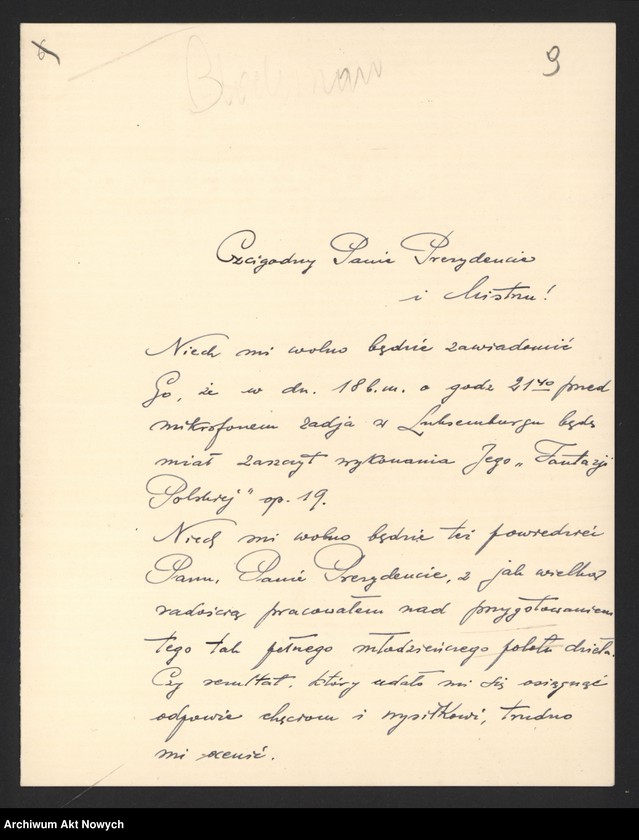 9
Czcigodny Panie Prezydencie
i Mistrzu!
Niech mi wolno będzie zawiadomić
Go, że w dn. 18 b.m. o godz 21 40 przed
mikrofonem radja w Luksemburgu będę
miał zaszczyt wykonania Jego „Fantazji
Polskiej" op. 19.
Niech mi wolno będzie też powiedzieć
Panu, Panie Prezydencie, z jak wielką
radością pracowałem nad przygotowaniem
tego tak pełnego młodzieńczego polotu dzieła.
Czy rezultat, który udało mi się osiągnąć
odpowie chęciom i wysiłkowi, trudno
mi ocenić.
Archiwum Akt Nowych